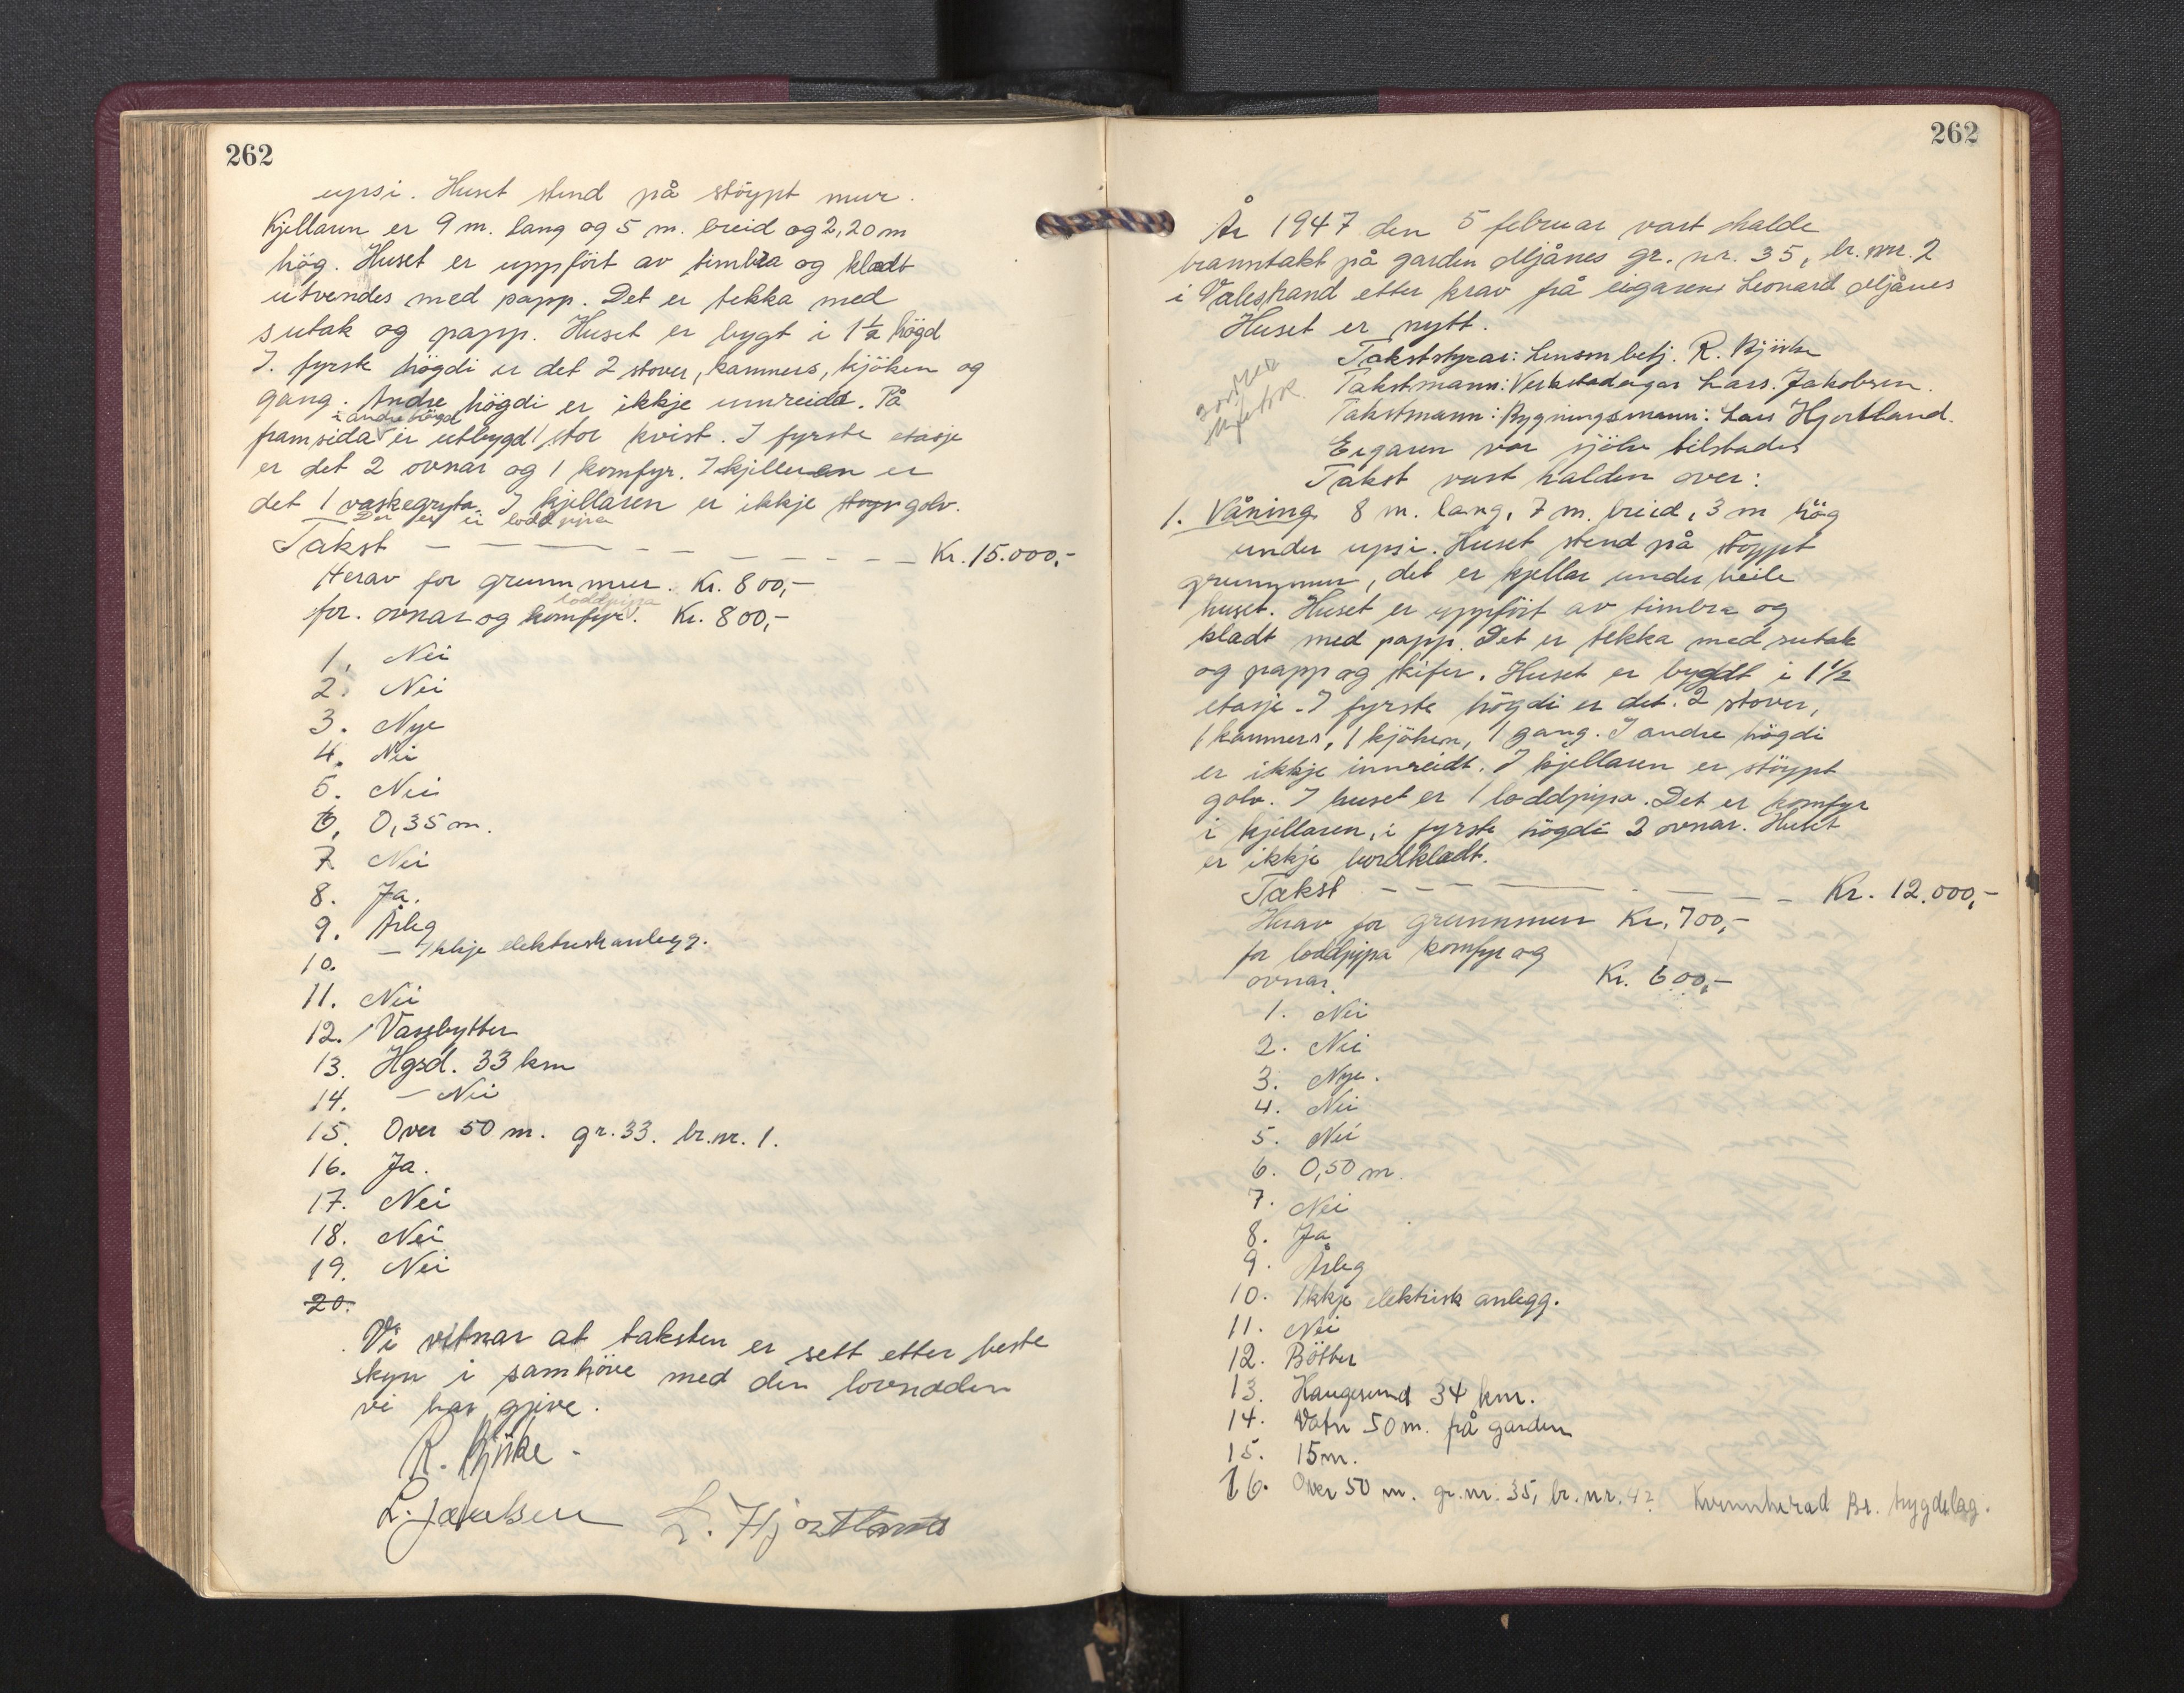 262
upsi. Huset stend på støypt mur.
Kjellaren er 9 m. lang og 5 m. breid og 2,20 m
høg. Huset er uppført av timbra og kledt
utvendes med papp. Det er tekka med
sutak og papp. Huset er bygt i 1½ høgd
I. fyrste høgdi er det 2 stover, kammers, kjøken og
gang. Andre høgdi er ikkje innreidd. På
i andre høgd
framsida er utbygd 1 stor kvist. I fyrste etasje
er det 2 ovnar og 1 komfyr. I kjellaren er
det 1 vaskegryta. I kjellaren er ikkje støyp golv.
Der er ei loddpipa
Takst — — — — — — — — Kr. 15.000,-
Herav for grunnmur. Kr. 800,-
loddpipa
for. ovnar og komfyr. Kr. 800,-
1. Nei
2. Nei
3. Nye
4. Nei
5. Nei
6. 0,35 m.
7. Nei
8. Ja.
9. Årleg
10. — Ikkje elektrisk anlegg.
11. Nei
12. Vassbytter
13. Hgsd. 33 km
14. — Nei
15. Over 50 m. gr. 33. br.nr. 1.
16. Ja.
17. Nei
18. Nei
19. Nei
20.
Vi vitnar at taksten er sett etter beste
skyn i samhøve med den lovnaden
vi har gjeve.
R. Bjiske
L. Jacobsen L. Hjortland
262
År 1947 den 5 februar vart halde
branntakst på garden Mjånes gr. nr. 35, br. nr. 2
i Valestrand etter krav frå eigaren Leonard Mjånes
Huset er nytt.
Takststyrar: Lensm betj. R.
Takstmann: Verkstadeigar Lars. Jakobsen.
Takstmann: Bygningsmann: Lars Hjortland.
Eigaren var sjølv tilstades
Takst vart halden over:
1. Våning 8 m. lang, 7 m. breid, 3 m høg
under upsi. Huset stend på støypt
grunnmur, det er kjellar under heile
huset. Huset er uppført av timbra og
kledt med papp. Det er tekka med sutak
og papp og skifer. Huset er bygdt i 1½
etasje. I fyrste høgdi er det. 2 stover,
1 kammers, 1 kjøken, 1 gang. I andre høgdi
er ikkje innreidt. I kjellaren er støypt
golv. I huset er 1 loddpipa. Det er komfyr
i kjellaren, i fyrste høgdi 2 ovnar. Huset
er ikkje bordkledt.
Takst — — — — — — — Kr. 12.000,-
Herav for grunnmur Kr. 700,-
for loddpipa komfyr og
ovnar. Kr. 600,-
1. Nei
2. Nei
3. Nye.
4. Nei
5. Nei
6. 0,50 m.
7. Nei
8. Ja
9. Årleg
10. Ikkje elektrisk anlegg.
11. Nei
12. Bøtter
13. Haugesund 34 km.
14. Vatn 50 m. på garden
15. 15 m.
16. Over 50 m. gr.nr. 35, br.nr. 42 Kvinnherad Br. trygdelag.